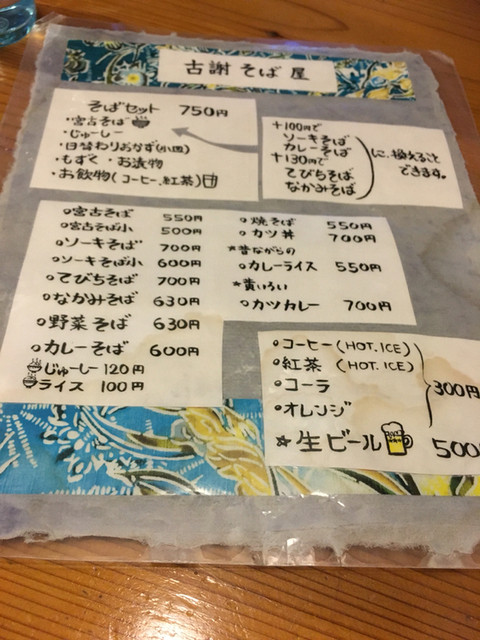 古謝そば屋
そばセット 750円
・宮古そば
・じゅーしー
・日替わりおかず(小皿)
・もずく・お漬物
・お飲物(コーヒー、紅茶)
+100円で
ソーキそば
カレーそば
+130円で
てびちそば
なかみそば
に、換えること
できます。
○宮古そば 550円
○宮古そば小 500円
○ソーキそば 700円
○ソーキそば小 600円
○てびちそば 700円
○なかみそば 630円
○野菜そば 630円
○カレーそば 600円
じゅーしー 120円
ライス 100円
○焼そば 550円
○カツ丼 700円
★昔ながらの
○カレーライス 550円
★黄いろい
○カツカレー 700円
○コーヒー(HOT.ICE)
○紅茶(HOT.ICE)
○コーラ
○オレンジ
300円
☆生ビール 500